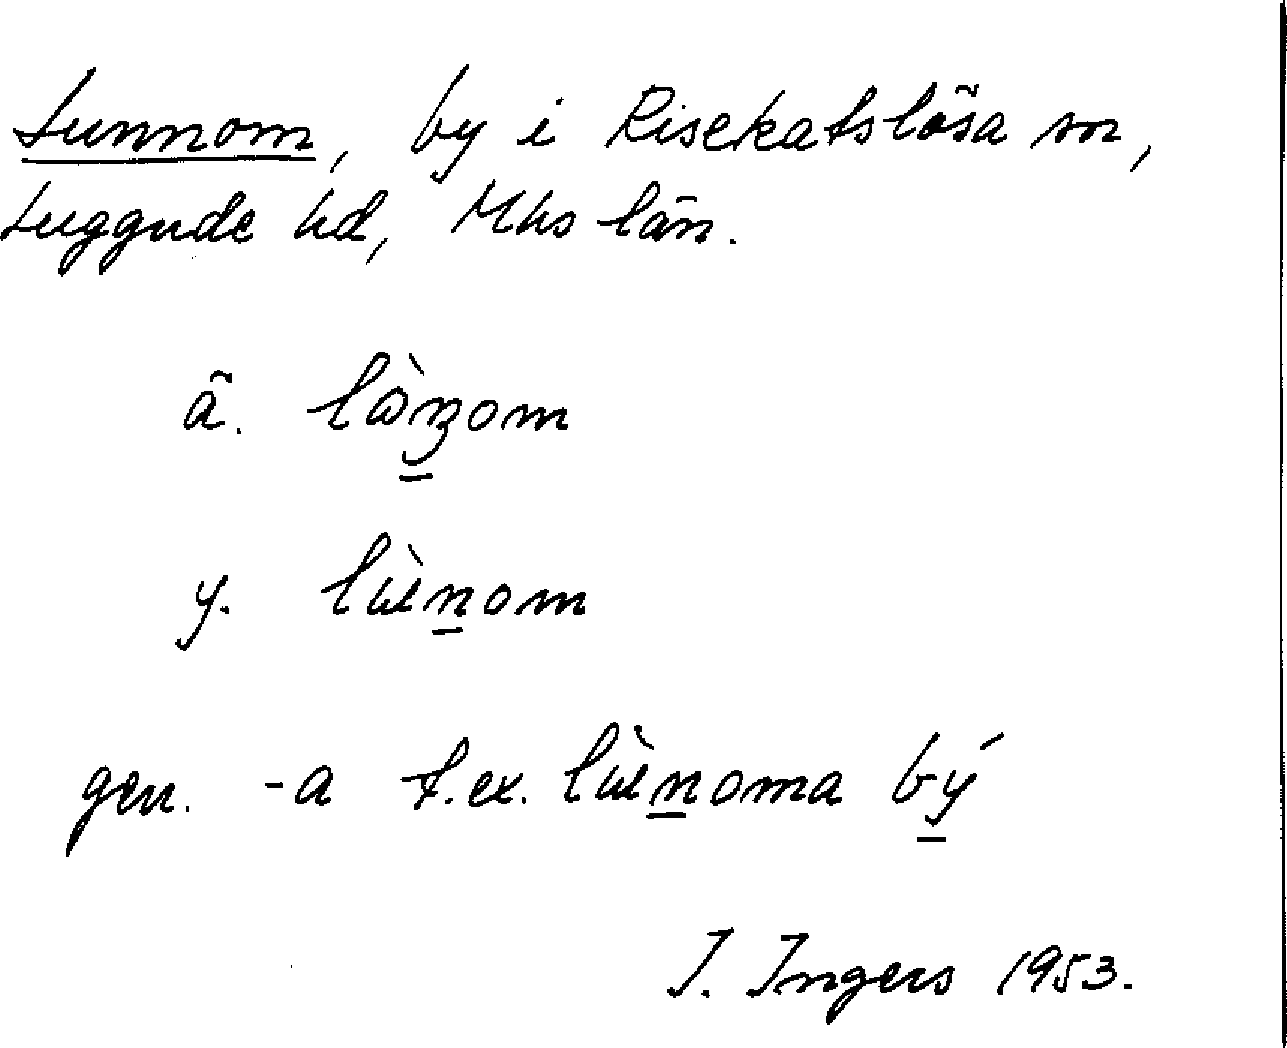 Lunnom, by i Risekatslösa sn,
Luggude hd, Mhs län.
ä. lɷ̀n̠om
y. lɯ̀n̠om
gen. -a t.ex. lɯ̀n̠oma bý̠
I. Ingers 1953.